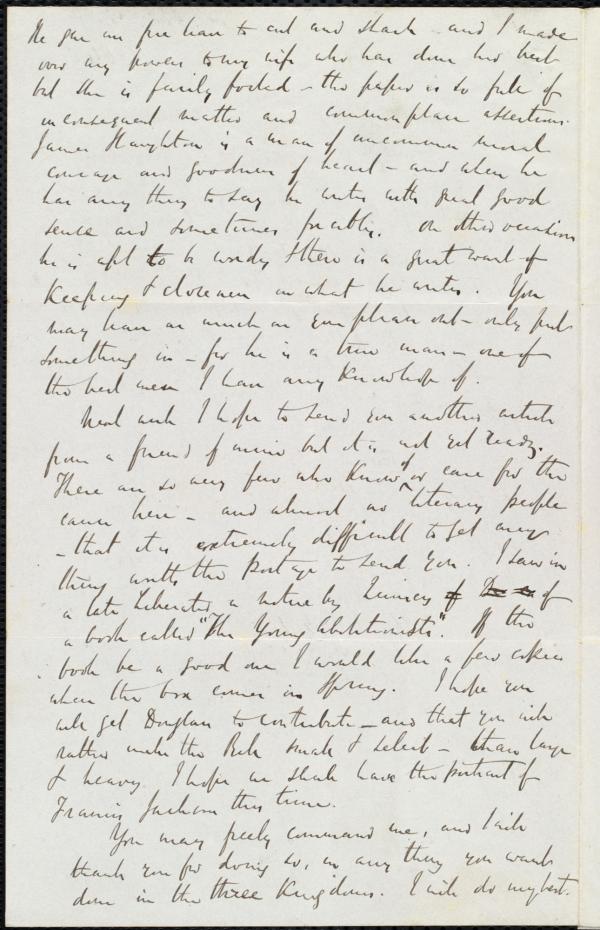 He gave me free leave to cut and slash - and I made
over my powers to my wife who has done her best
but she is fairly foiled - the paper is so full of
inconsequent matter and commonplace assertions.
James Haughton is a man of uncommon moral
courage and goodness of heart - and when he
has any thing to say he writes with great good
sense and sometimes forcibly. On other occasions
he is apt to be wordy & there is a great want of
keeping & closeness in what he writes. You
may leave as much as you please out - only put
something in - for he is a true man - one of
the best men I have any knowledge of.
Next week I hope to send you another article
from a friend of mine but it is not yet ready.
There are so very few who know of or care for the
cause here - and almost no literary people
- that it is extremely difficult to get any
thing worth the postage to send you. I saw in
a late Liberator a notice by Quincy of
a book called "The Young Abolitionists". If the
book be a good one I would like a few copies
when the box comes in Spring. I hope you
will get Douglass to contribute - and that you will
rather make the Bell small & select - than large
& heavy. I hope we shall have the portrait of
Francis Jackson this time.
You may freely command me, and I will
thank you for doing so, in any thing you want
done in the three Kingdoms. I will do my best.